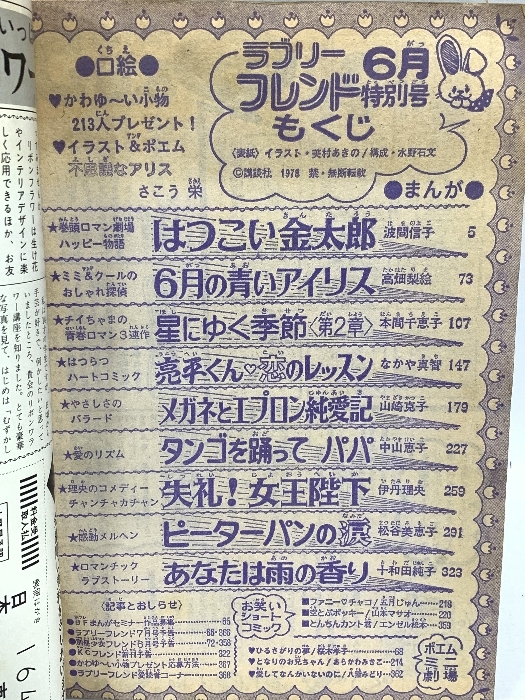 ●口絵●
♥かわゆ〜い小物
213人プレゼント！
♥イラスト&ポエム
不思議なアリス
さこう 栄
ラブリーフレンド
6月特別号
もくじ
〈表紙〉イラスト・英村あきの/構成・水野石文
©講談社 1978 禁・無断転載
●まんが●
★巻頭ロマン劇場
ハッピー物語
はつこい金太郎
波間信子 5
★ミミ&クールの
おしゃれ探偵
6月の青いアイリス
高畑梨絵 73
★チイちゃまの
青春ロマン3連作
星にゆく季節〈第2章〉
本間千恵子 107
★はつらつ
ハートコミック
亮平くん♡恋のレッスン
なかや真智 147
★やさしさの
バラード
メガネとエプロン純愛記
山崎克子 179
★愛のリズム
タンゴを踊って パパ
中山恵子 227
★理央のコメディー
チャンチャカチャン
失礼！女王陛下
伊丹理央 259
★感動メルヘン
ピーターパンの涙
松谷美恵子 291
★ロマンチック
ラブストーリー
あなたは雨の香り
十和田純子 323
〈記事とおしらせ〉
●ラブリーフレンド7月号予告
●KCフレンド新刊予告
●かわゆ〜い小物プレゼント応募方法 367
●ラブリーフレンド愛読者コーナー 368
お笑い
ショート
コミック
■ファニー♡チャコ/五月じゅん 218
■空とぶポッキー/山本マサオ 220
■とんちんカント君/エンゼル絵本 359
♥ひるさがりの夢/桜木洋子 168
♥となりのお兄ちゃん/あらかわみさこ 214
ポエム
ミニ
劇場
リボンフラワーは生け花
やインテリアデザインに楽
しく応用できるほか、お友